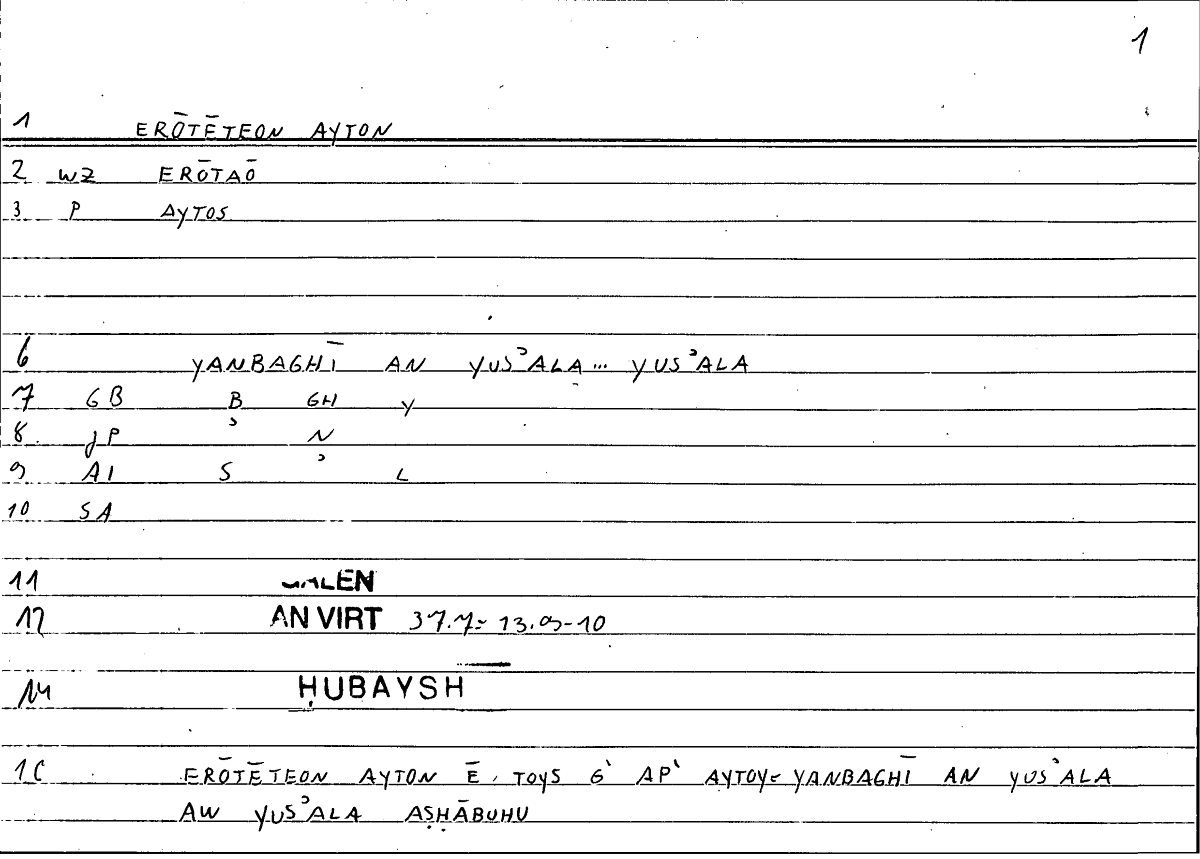 1
1 ERŌTĒTEON AYTON
2 WZ ERŌTAŌ
3 P AYTOS
6 YANBAGHĪ AN YUSʾALA... YUSʾALA
7 GB B GH Y
8 JP ʾ N
9 AI S ʾ L
10 SA
11 GALEN
12 AN VIRT 37.7= 13.9-10
14 ḤUBAYSH
1C ERŌTĒTEON AYTON Ē, TOYS G' AP' AYTOY= YANBAGHĪ AN YUSʾALA
AW YUSʾALA AṢḤĀBUHU